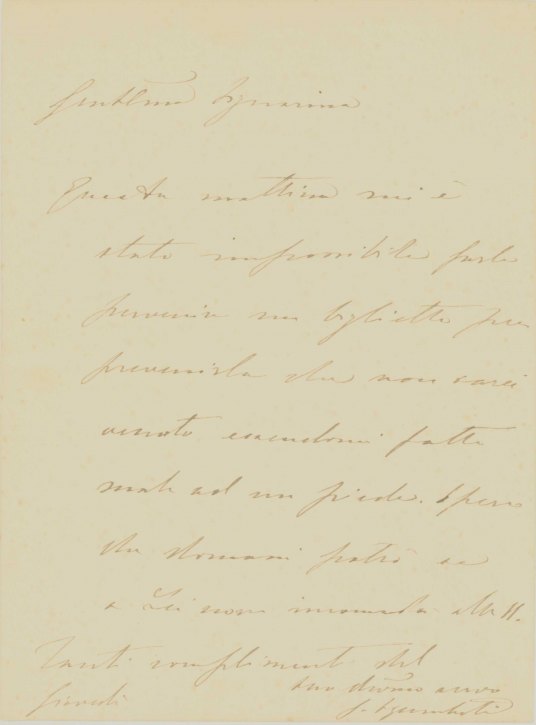 Gentma Signorina
Questa mattina mi è
stato impossibile farle
pervenire un biglietto per
prevenirla che non sarei
venuto essendomi fatto
male ad un piede. Spero
che domani potrò se
a Lei non incomoda alle 11.
Tanti complimenti dal
suo dvmo servo
Giovedi G. Sgambati